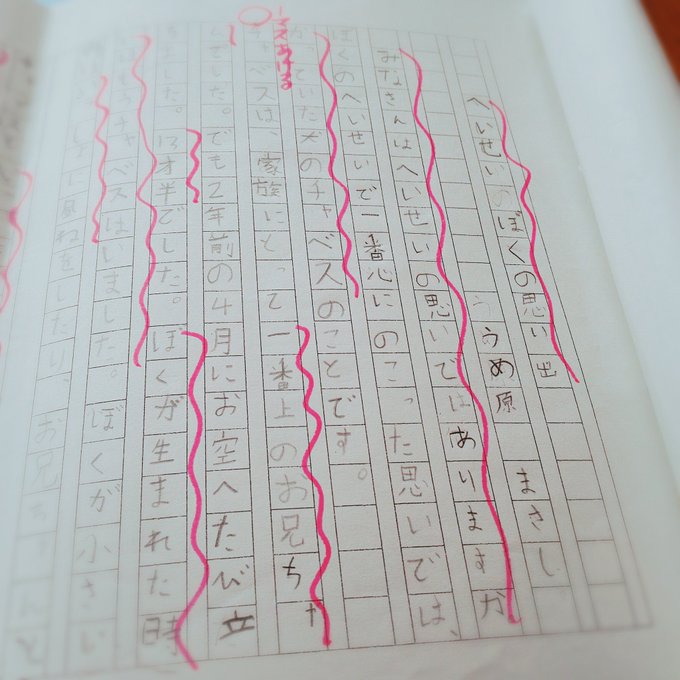 へいせいのぼくの思い出
うめ原　まさし
みなさんはへいせいの思いではありますか
ぼくのへいせいで一番心にのこった思いでは、
かっていた犬のチャベスのことです。
一マスあける
チャベスは、家族にとって一番上のお兄ちゃ
んでした。でも2年前の4月にお空へたび立
ちました。13才半でした。ぼくが生まれた時
はもうチャベスはいました。ぼくが小さい
昼ねをしたり、お兄ちゃんと